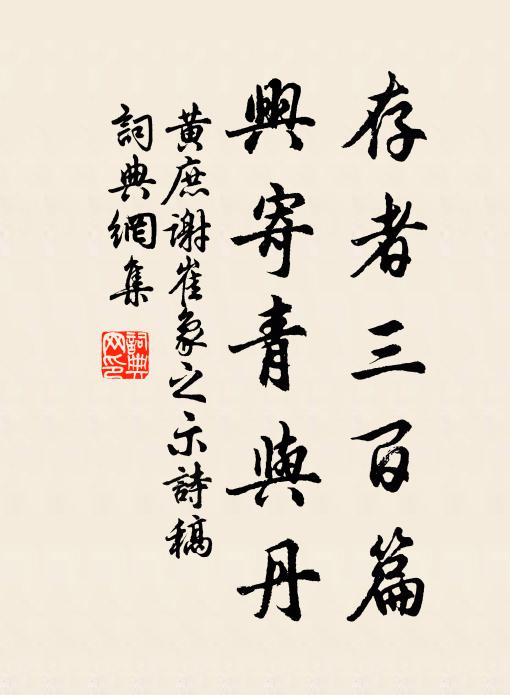 存者三百篇
興寄青與丹
黃庶謝崔象之示詩稿
詞典網集
詞典网印